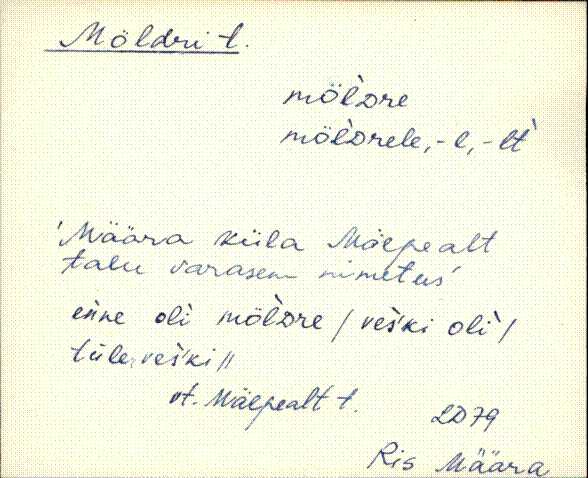 Möldri t.
möl̀dre
möl̀drele, -l, -lt̀
'Määra küla Mäepealt
talu varasem nimetus'
enne oli möl̀dre / veški oli /
tüleveški //
vt. Mäepealt t.
LD79
Ris Määra